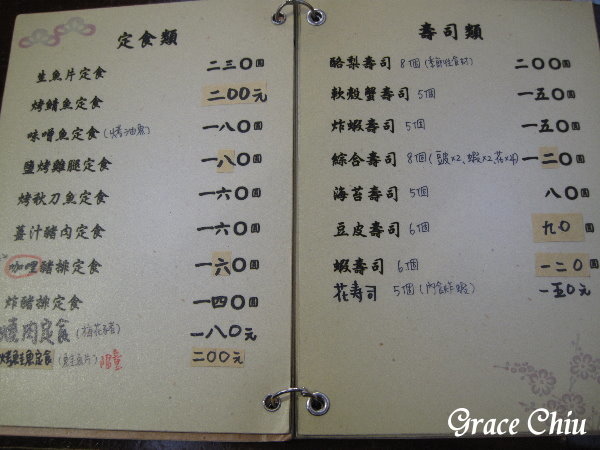 定食類
生魚片定食 二三〇圓
烤鯖魚定食 二〇〇元
味噌魚定食(烤油魚) 一八〇圓
鹽烤雞腿定食 一八〇圓
烤秋刀魚定食 一六〇圓
薑汁豬肉定食 一六〇圓
咖哩豬排定食 一六〇圓
炸豬排定食 一四〇圓
燒肉定食(梅花豬) 一八〇元
烤鮭魚定食(鮭魚片)限量 二〇〇元
壽司類
酪梨壽司 8個(季節性食材) 二〇〇圓
軟殼蟹壽司 5個 一五〇圓
炸蝦壽司 5個 一五〇圓
綜合壽司 8個(豆皮x2、蝦x2、花x4) 一二〇圓
海苔壽司 5個 八〇圓
豆皮壽司 6個 九〇圓
蝦壽司 6個 一二〇圓
花壽司 5個(內含炸蝦) 一五〇元
Grace Chiu